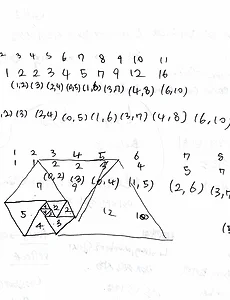 2 3 4 5 6 7 8 9 10 11
1 2 2 3 4 5 7 9 12 16
(1,2) (3) (2,4) (0,5) (1,6) (3,7) (4,8) (6,10)
,2) (3) (2,4) (0,5) (1,6) (3,7) (4,8) (6,10)
1 2 3 4 5 6 7 8
1 2 2 2 4 5 7
(0,2) (3) (0,4) (1,5) (2,6) (3,7
7 9
5 2 2 12
4 3